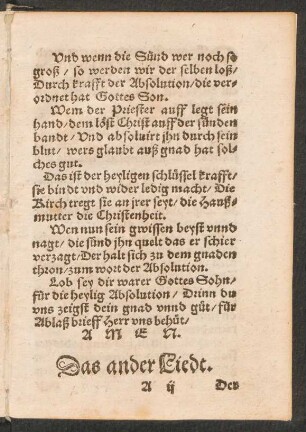 Vnd wenn die Sünd wer noch so
groß / so werden wir der selben loß /
Durch krafft der Absolution / die ver-
ordnet hat Gottes Son.
Wem der Priester auff legt sein
hand / dem löst Christ auff der sünden
bandt / Vnd absoluirt jhn durch sein
blut / wers glaubt auß gnad hat sol-
ches gut.
Das ist der heyligen schlüssel krafft /
sie bindt vnd wider ledig macht / Die
Kirch tregt sie an jrer seyt / die Hauß-
mutter die Christenheit.
Wen nun sein gwissen beyst vnnd
nagt / die sünd jhn quelt das er schier
verzagt / Der halt sich zu dem gnaden
thron / zum wort der Absolution.
Lob sey dir warer Gottes Sohn /
für die heylig Absolution / Drinn du
vns zeigst dein gnad vnnd güt / für
Ablaß brieff Herr vns behüt /
A M E N.
Das ander Liedt.
A ij Der